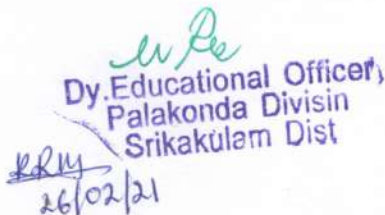 Dy.Educational Officer,
Palakonda Divisin
Srikakulam Dist
26/02/21